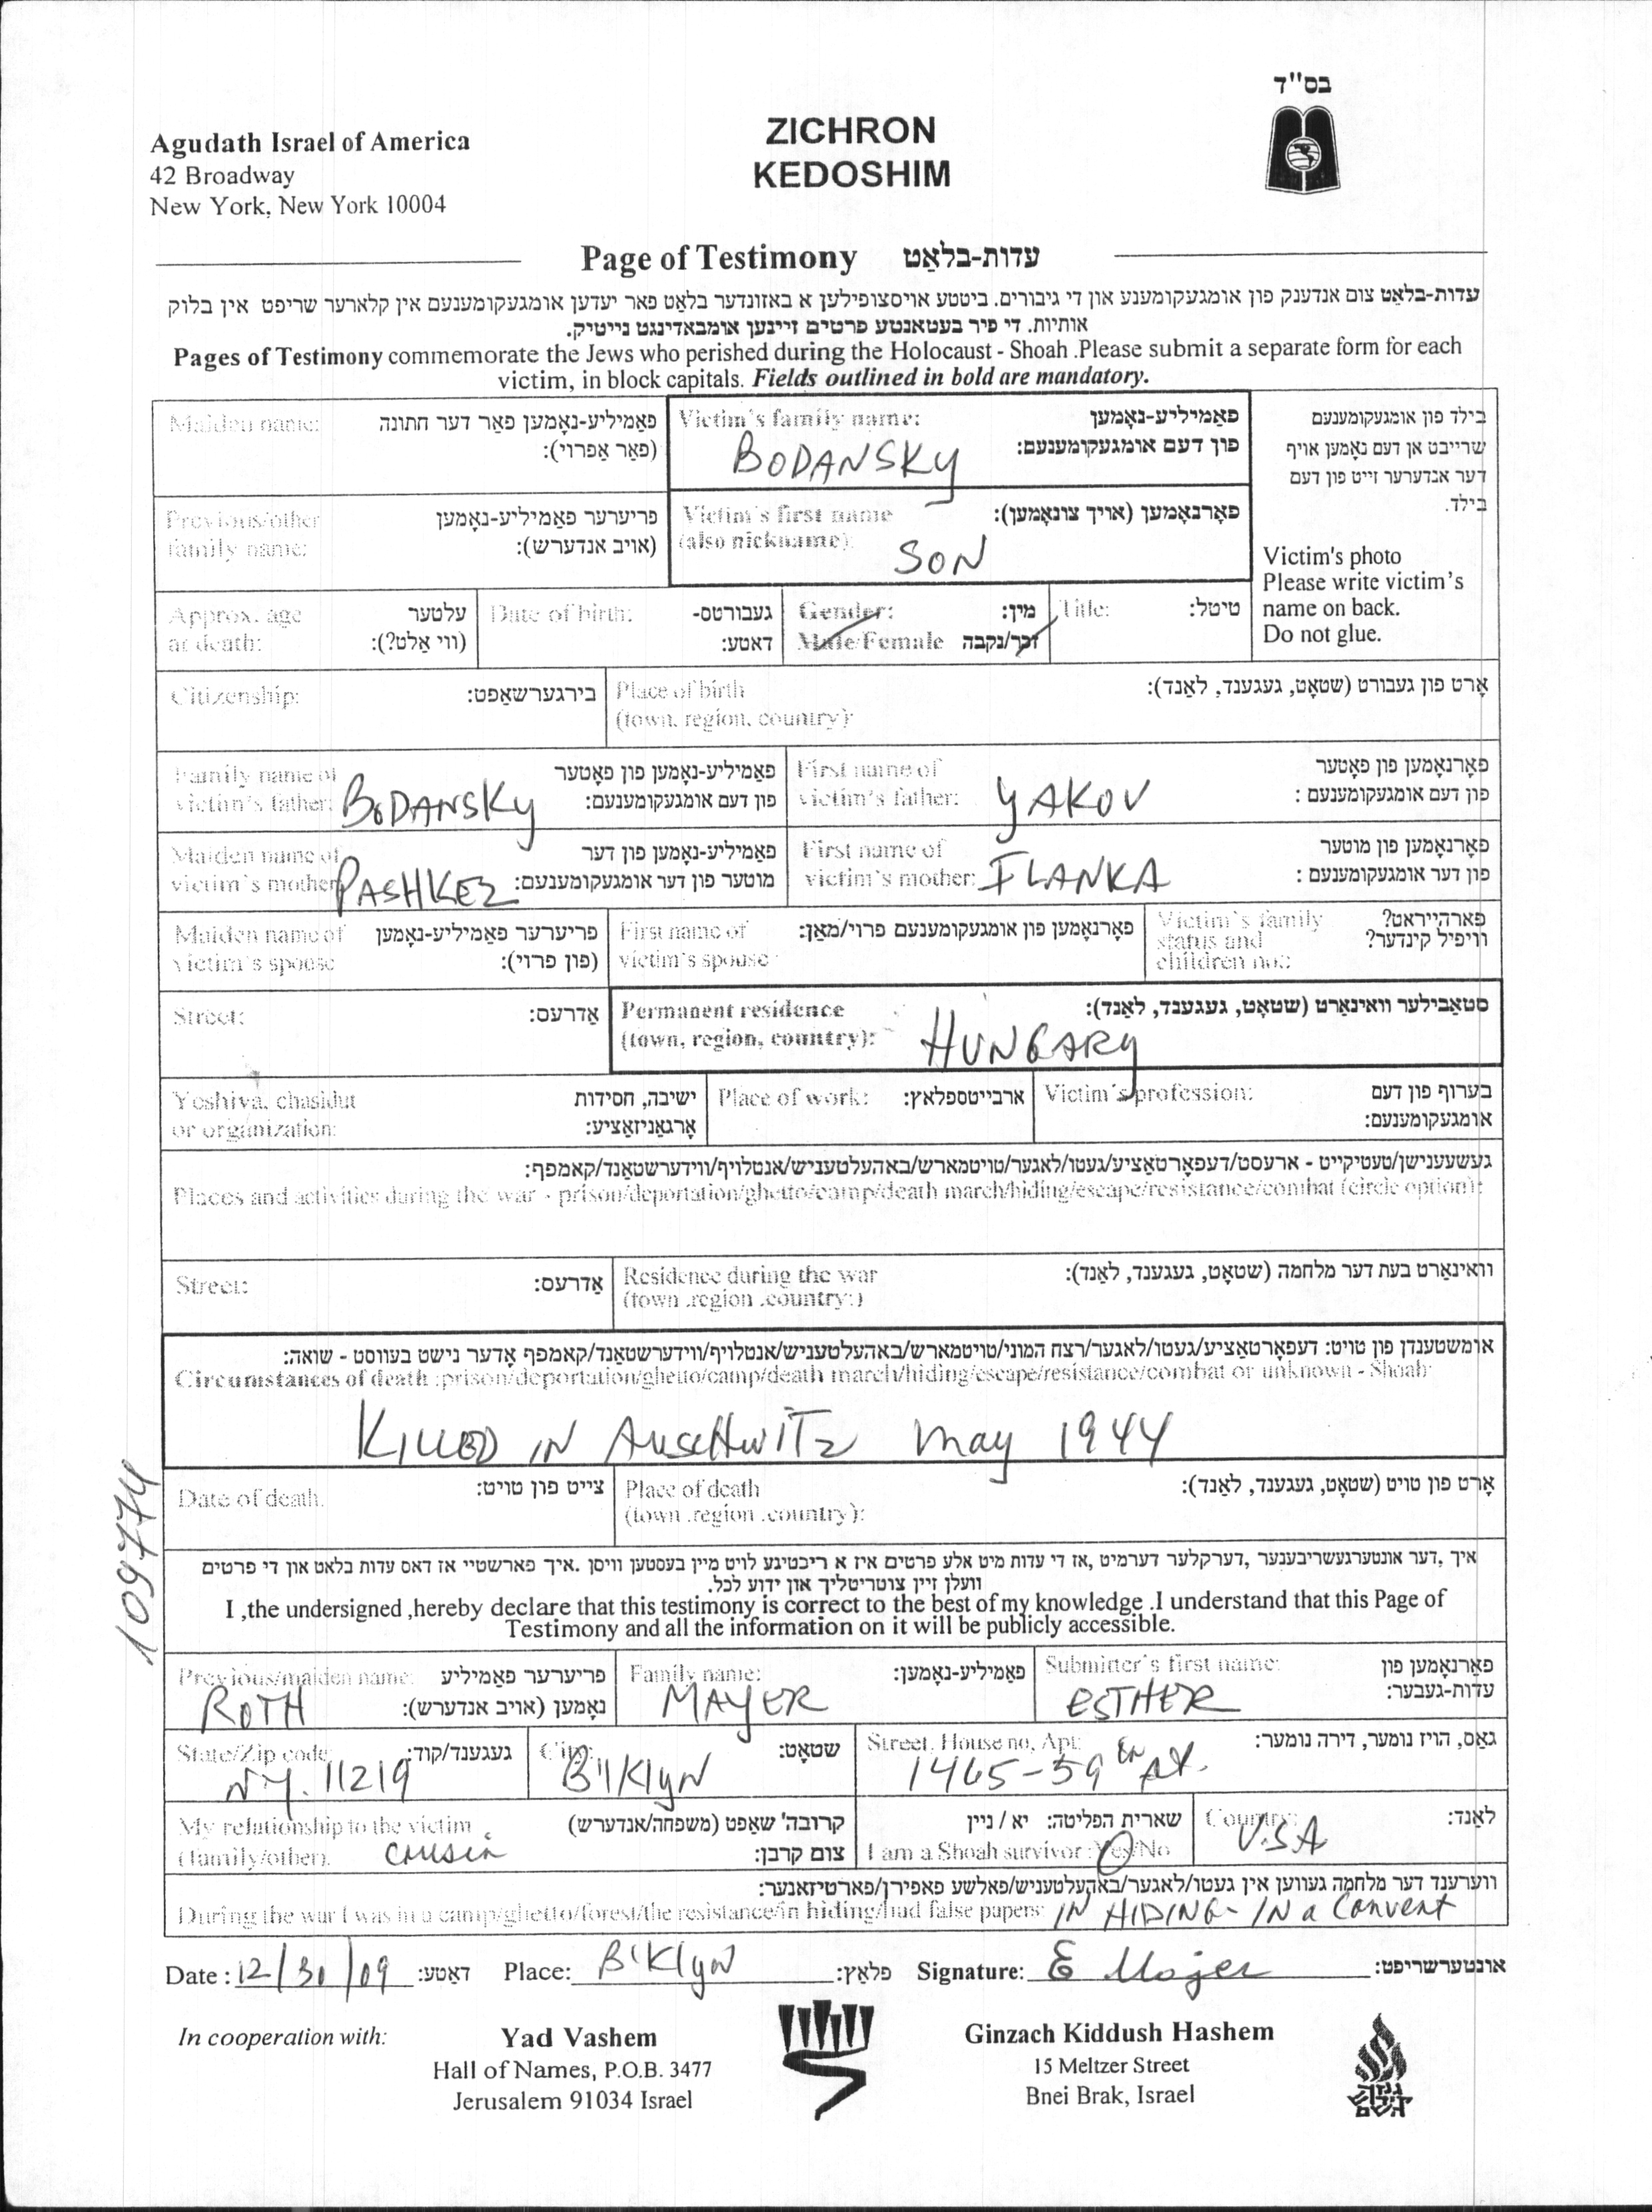 בס"ד
Agudath Israel of America
42 Broadway
New York, New York 10004
ZICHRON
KEDOSHIM
Page of Testimony עדות-בלאַט
עדות-בלאַט צום אנדענק פון אומגעקומענע און די גיבורים. ביטטע אויסצופילען א באזונדער בלאט פאר יעדען אומגעקומענעם אין קלארער שריפט אין בלוק
אותיות. די פיר בעטאנטע פרטים זיינען אומבאדינגט נייטיק.
Pages of Testimony commemorate the Jews who perished during the Holocaust - Shoah .Please submit a separate form for each
victim, in block capitals. Fields outlined in bold are mandatory.
Maiden name: פאַמיליע-נאָמען פאַר דער חתונה
(פאַר אַפרוי):
Victim's family name: פאַמיליע-נאָמען
פון דעם אומגעקומענעם:
BODANSKY
בילד פון אומגעקומענעם
שרייבט אן דעם נאָמען אויף
דער אנדערער זייט פון דעם
בילד.
Victim's photo
Please write victim's
name on back.
Do not glue.
Previous/other פריערער פאַמיליע-נאָמען
family name: (אויב אנדערש):
Victim's first name פאָרנאָמען (אויך צונאָמען):
(also nickname):
SON
Approx. age עלטער
at death: (ווי אַלט?):
Date of birth: געבורטס-
דאטע:
Gender: מין:
Male/Female זכר/נקבה
Title: טיטל:
Citizenship: בירגערשאַפט:
Place of birth אָרט פון געבורט (שטאָט, געגענד, לאַנד):
(town, region, country):
Family name of פאַמיליע-נאָמען פון פאָטער
victim's father: BODANSKY פון דעם אומגעקומענעם:
First name of פאָרנאָמען פון פאָטער
victim's father: YAKOV פון דעם אומגעקומענעם :
Maiden name of פאַמיליע-נאָמען פון דער
victim's mother: PASHKEZ מוטער פון דער אומגעקומענעם:
First name of פאָרנאָמען פון מוטער
victim's mother: ILANKA פון דער אומגעקומענעם :
Maiden name of פריערער פאַמיליע-נאָמען
victim's spouse (פון פרוי):
First name of פאָרנאָמען פון אומגעקומענעם פרוי/מאַן:
victim's spouse
Victim's family פארהייראט?
status and וויפיל קינדער?
children no.:
Street: אַדרעס:
Permanent residence סטאַבילער וואוינאָרט (שטאָט, געגענד, לאַנד):
(town, region, country): HUNGARY
Yeshiva, chasidut ישיבה, חסידות
or organization: אָרגאַניזאַציע:
Place of work: ארבייטספלאץ:
Victim's profession: בערוף פון דעם
אומגעקומענעם:
געשעענישן/טעטיקייט - ארעסט/דעפאָרטאַציע/געטו/לאגער/טויטמארש/באהעלטעניש/אנטלויף/ווידערשטאַנד/קאמפף:
Places and activities during the war - prison/deportation/ghetto/camp/death march/hiding/escape/resistance/combat (circle option):
Street: אַדרעס:
Residence during the war וואוינאָרט בעת דער מלחמה (שטאָט, געגענד, לאַנד):
(town .region .country:)
אומשטענדן פון טויט: דעפאָרטאַציע/געטו/לאגער/רצח המוני/טויטמארש/באהעלטעניש/אנטלויף/ווידערשטאַנד/קאמפף אָדער נישט בעווסט - שואה:
Circumstances of death :prison/deportation/ghetto/camp/death march/hiding/escape/resistance/combat or unknown - Shoah:
KILLED IN AuscHwITz may 1944
Date of death. צייט פון טויט:
Place of death אָרט פון טויט (שטאָט, געגענד, לאַנד):
(town .region .country):
109774
איך ,דער אונטערגעשריבענער ,דערקלער דערמיט ,אז די עדות מיט אלע פרטים איז א ריכטיגע לויט מיין בעסטען וויסן .איך פארשטיי אז דאס עדות בלאט און די פרטים
וועלן זיין צוטריטליך און ידוע לכל.
I ,the undersigned ,hereby declare that this testimony is correct to the best of my knowledge .I understand that this Page of
Testimony and all the information on it will be publicly accessible.
Previous/maiden name: פריערער פאַמיליע
ROTH נאָמען (אויב אנדערש):
Family name: פאַמיליע-נאָמען:
MAYER
Submitter's first name: פאָרנאָמען פון
עדות-געבער:
ESTHER
State/Zip code: געגענד/קוד:
NY. 11219
City: שטאָט:
B'Klyn
Street, House no, Apt: גאַס, הויז נומער, דירה נומער:
1465-59
My relationship to the victim קרובה' שאַפט (משפחה/אנדערש)
(family/other). cousin צום קרבן:
שארית הפליטה: יא / ניין
I am a Shoah survivor :Yes/No
Country: לאַנד:
U.S.A
ווערענד דער מלחמה געווען אין געטו/לאגער/באַהעלטעניש/פאלשע פאפירן/פארטיזאנער:
During the war I was in a camp/ghetto/forest/the resistance/in hiding/had false papers: IN HIDING - IN a Convent
Date : 12/30/09 דאַטע: Place: B'Klyn פלאַץ: Signature: E Mayer אונטערשריפט:
In cooperation with:
Yad Vashem
Hall of Names, P.O.B. 3477
Jerusalem 91034 Israel
Ginzach Kiddush Hashem
15 Meltzer Street
Bnei Brak, Israel
גנזך
קידוש
השם